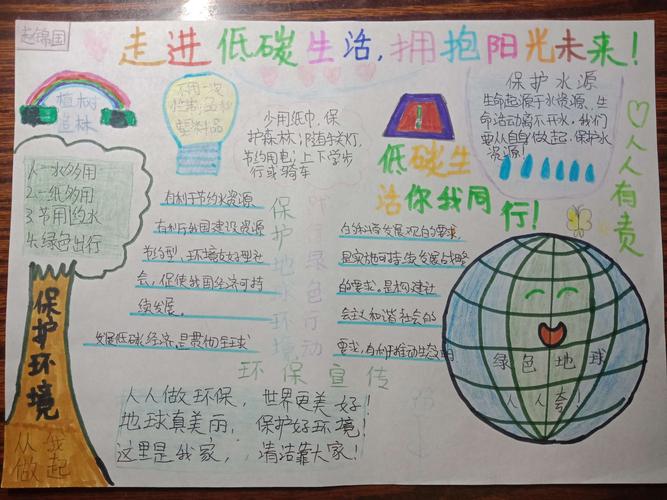 赵锦国
走进低碳生活,拥抱阳光未来!
植树
造林
不用一次
塑料品
少用纸巾,保
护森林;随手关灯,
节约用电;上下学步
行或骑车
低碳生
活你我同
行!
保护水源
生命起源于水资源、生
命活动离不开水,我们
要从自身做起,保护水
资源!
人人有责
1.一水多用
2.一纸多用
3.节用约水
4.绿色出行
保护环境
从我
做起
有利于节约水资源
有利于我国建设资源
节约型、环境友好型社
会,促使我国经济可持
续发展。
发展低碳经济,是贯彻落
保护地球环境
践行绿色行动
实科学发展观的要求,
是实施可持续发展战略
的要求。是构建社
会主义和谐社会的
要求,有利于推动生态文明
绿色地球
人人夸!
环保宣传
人人做环保,世界更美好!
地球真美丽,保护好环境!
这里是我家,清洁靠大家!